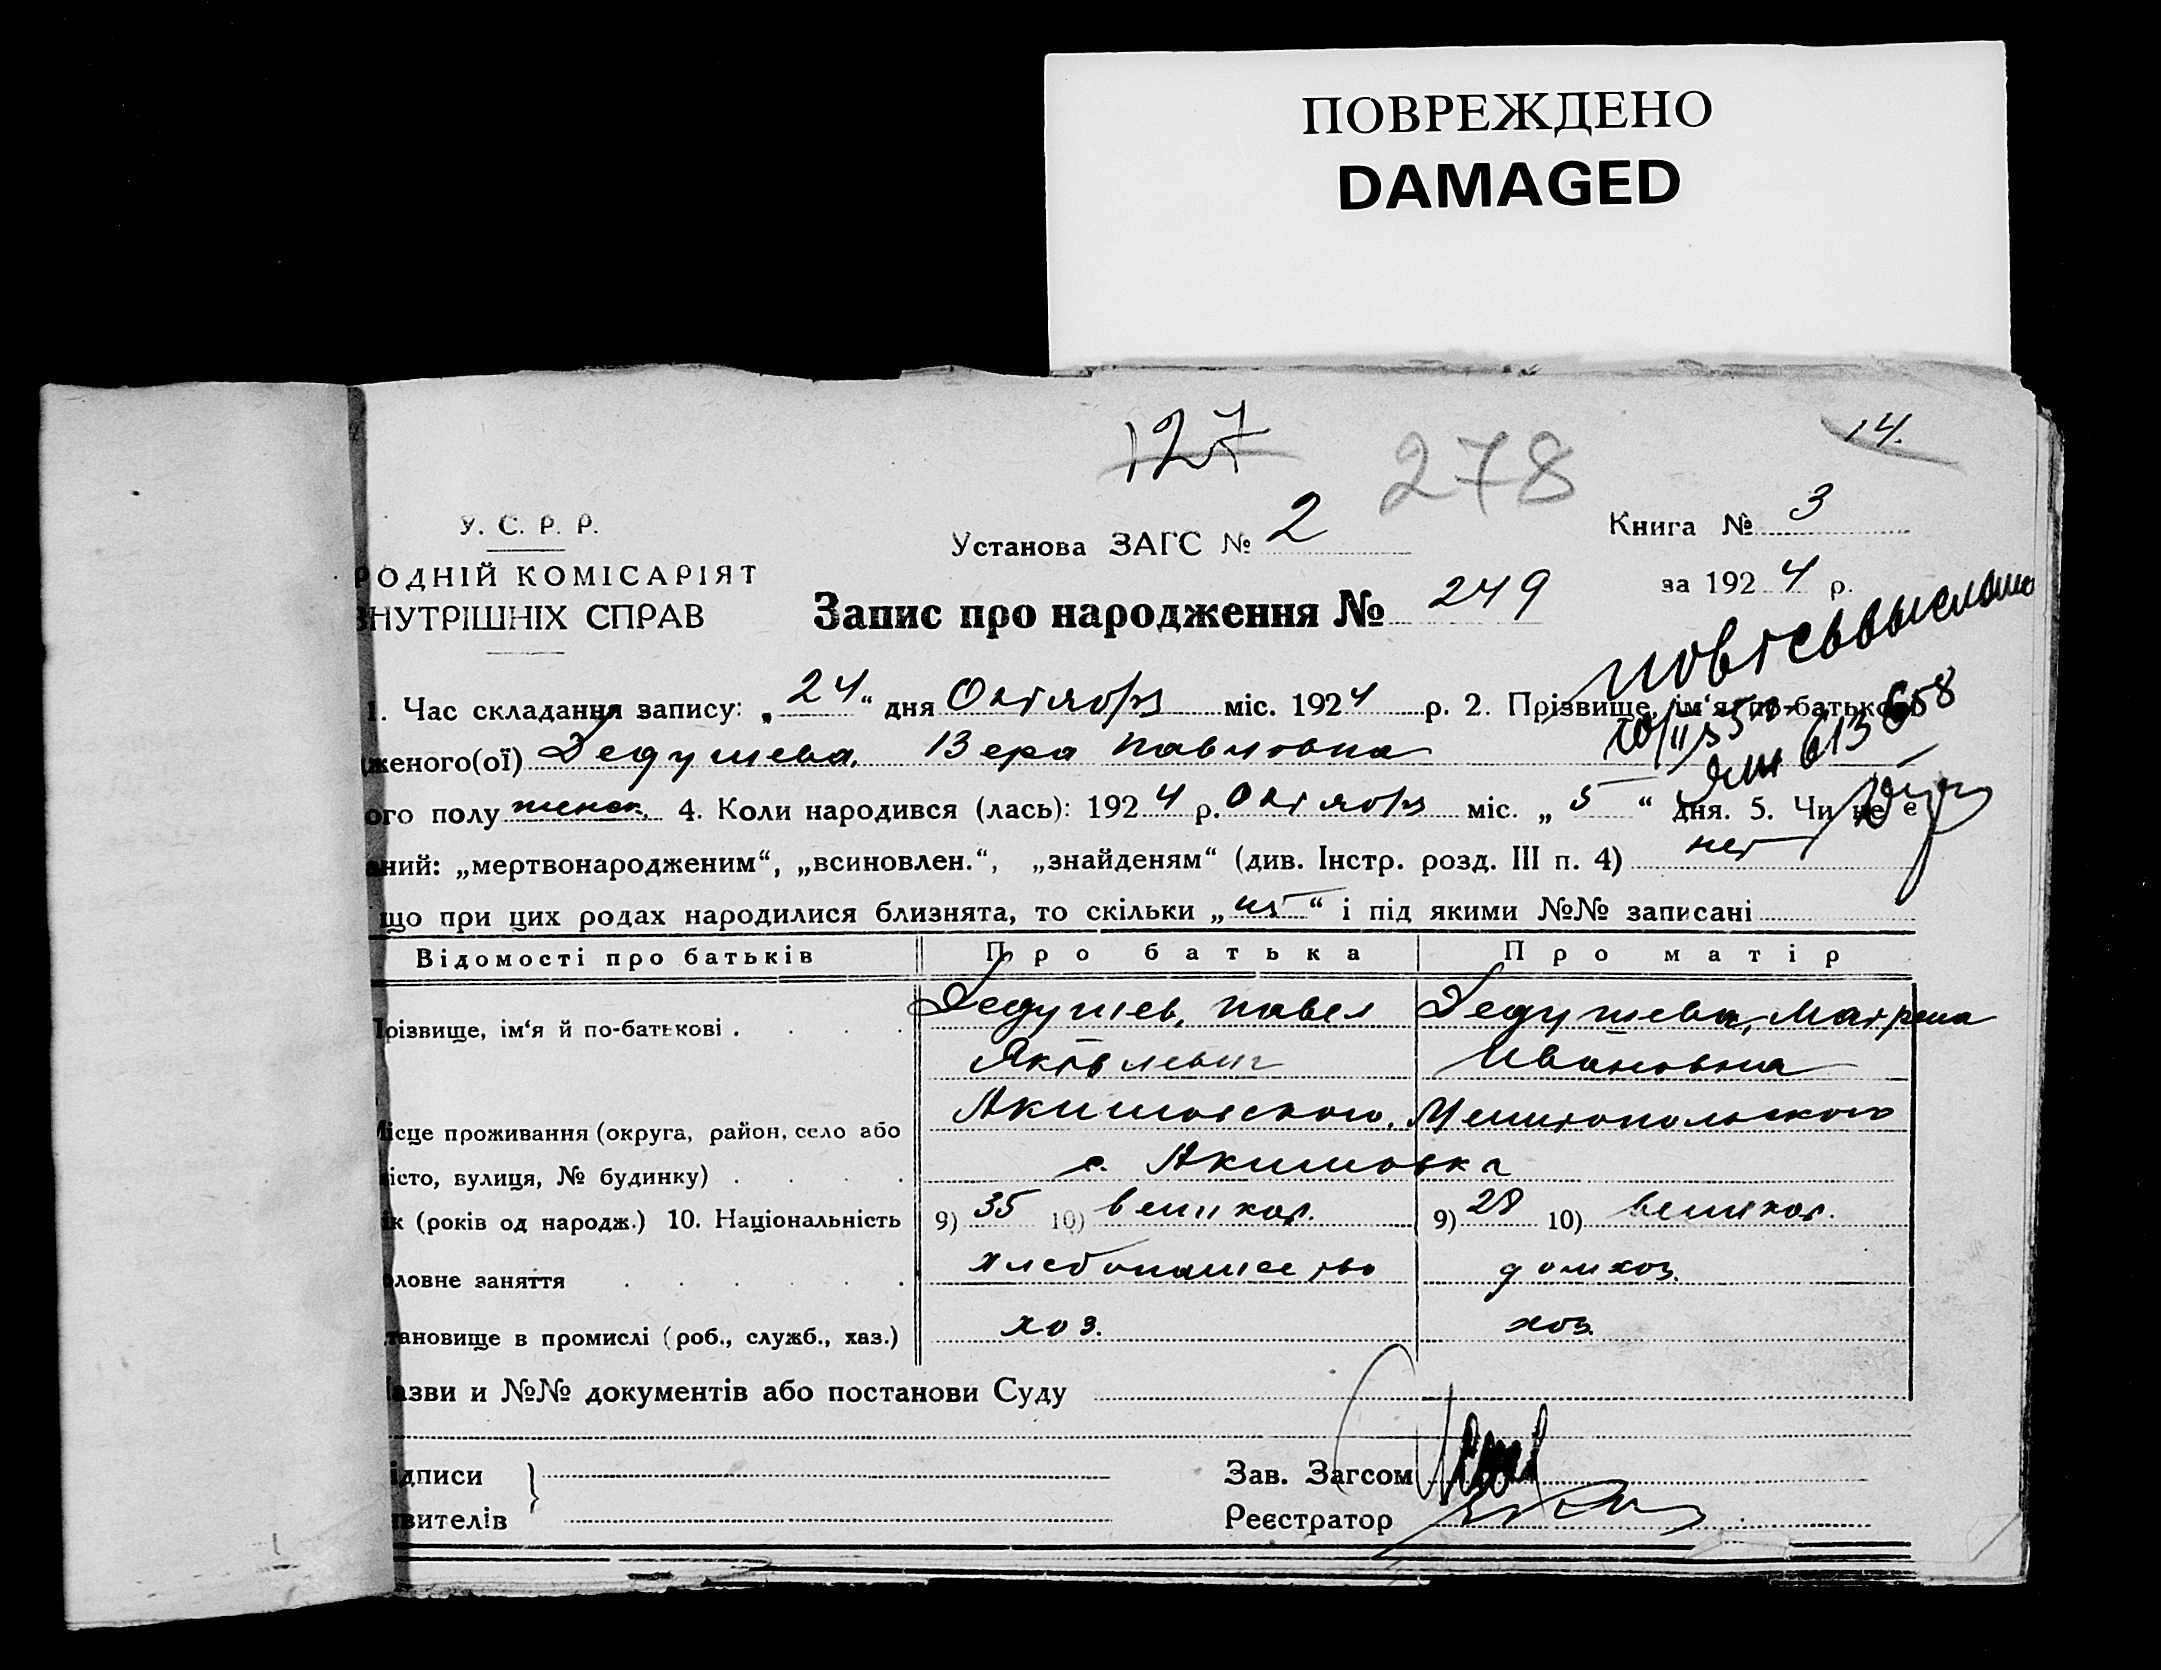 ПОВРЕЖДЕНО
DAMAGED
127
278
14.
У. С. Р. Р.
РОДНІЙ КОМІСАРІЯТ
ВНУТРІШНІХ СПРАВ
Установа ЗАГС № 2
Книга № 3
за 1924 р.
Запис про народження № 249
повт свв выслано
1. Час складання запису: „24“ дня Октября міс. 1924 р. 2. Прізвище, ім‘я по-батькові
женого(ої) Дедушева Вера Павловна
ого полу женск. 4. Коли народився (лась): 1924 р. Октября міс. „5“ дня. 5. Чи не є
аний: „мертвонародженим“, „всиновлен.“, „знайденям“ (див. Інстр. розд. III п. 4) нет
що при цих родах народилися близнята, то скільки „ “ і під якими №№ записані
Відомості про батьків Про батька Про матір
Прізвище, ім‘я й по-батькові . Дедушев, Павел Дедушева, Матрена
Яковлевич Ивановна
Місце проживання (округа, район, село або Акимовского, Мелитопольского
місто, вулиця, № будинку) с. Акимовка
ік (років од народж.) 10. Національність 9) 35 10) великор. 9) 28 10) великор.
оловне заняття хлебопашество домхоз.
тановище в промислі (роб., служб., хаз.) хоз. хоз.
Назви и №№ документів або постанови Суду
ідписи
Зав. Загсом
явителів
Реєстратор